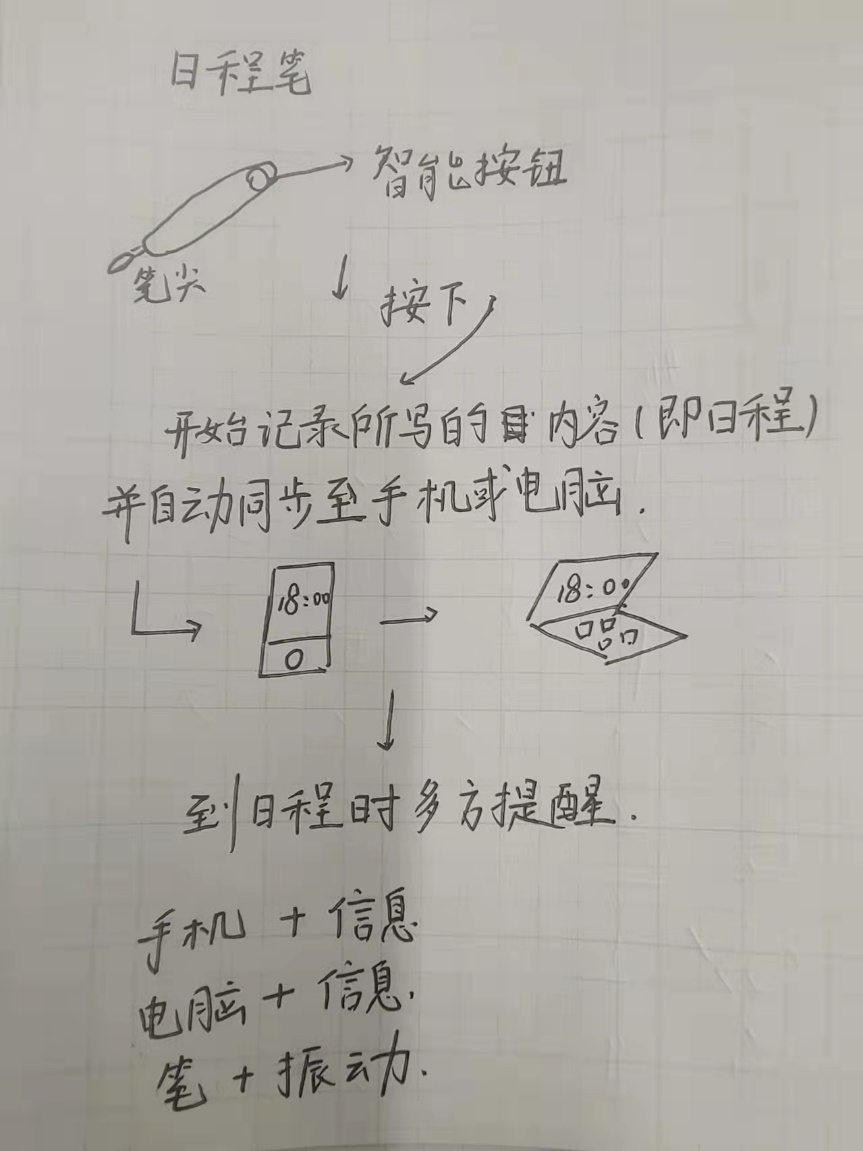 日程笔
智能按钮
笔尖
按下
开始记录所写的内容(即日程)
并自动同步至手机或电脑.
18:00
18:00
到日程时多方提醒.
手机+信息
电脑+信息.
笔+振动.